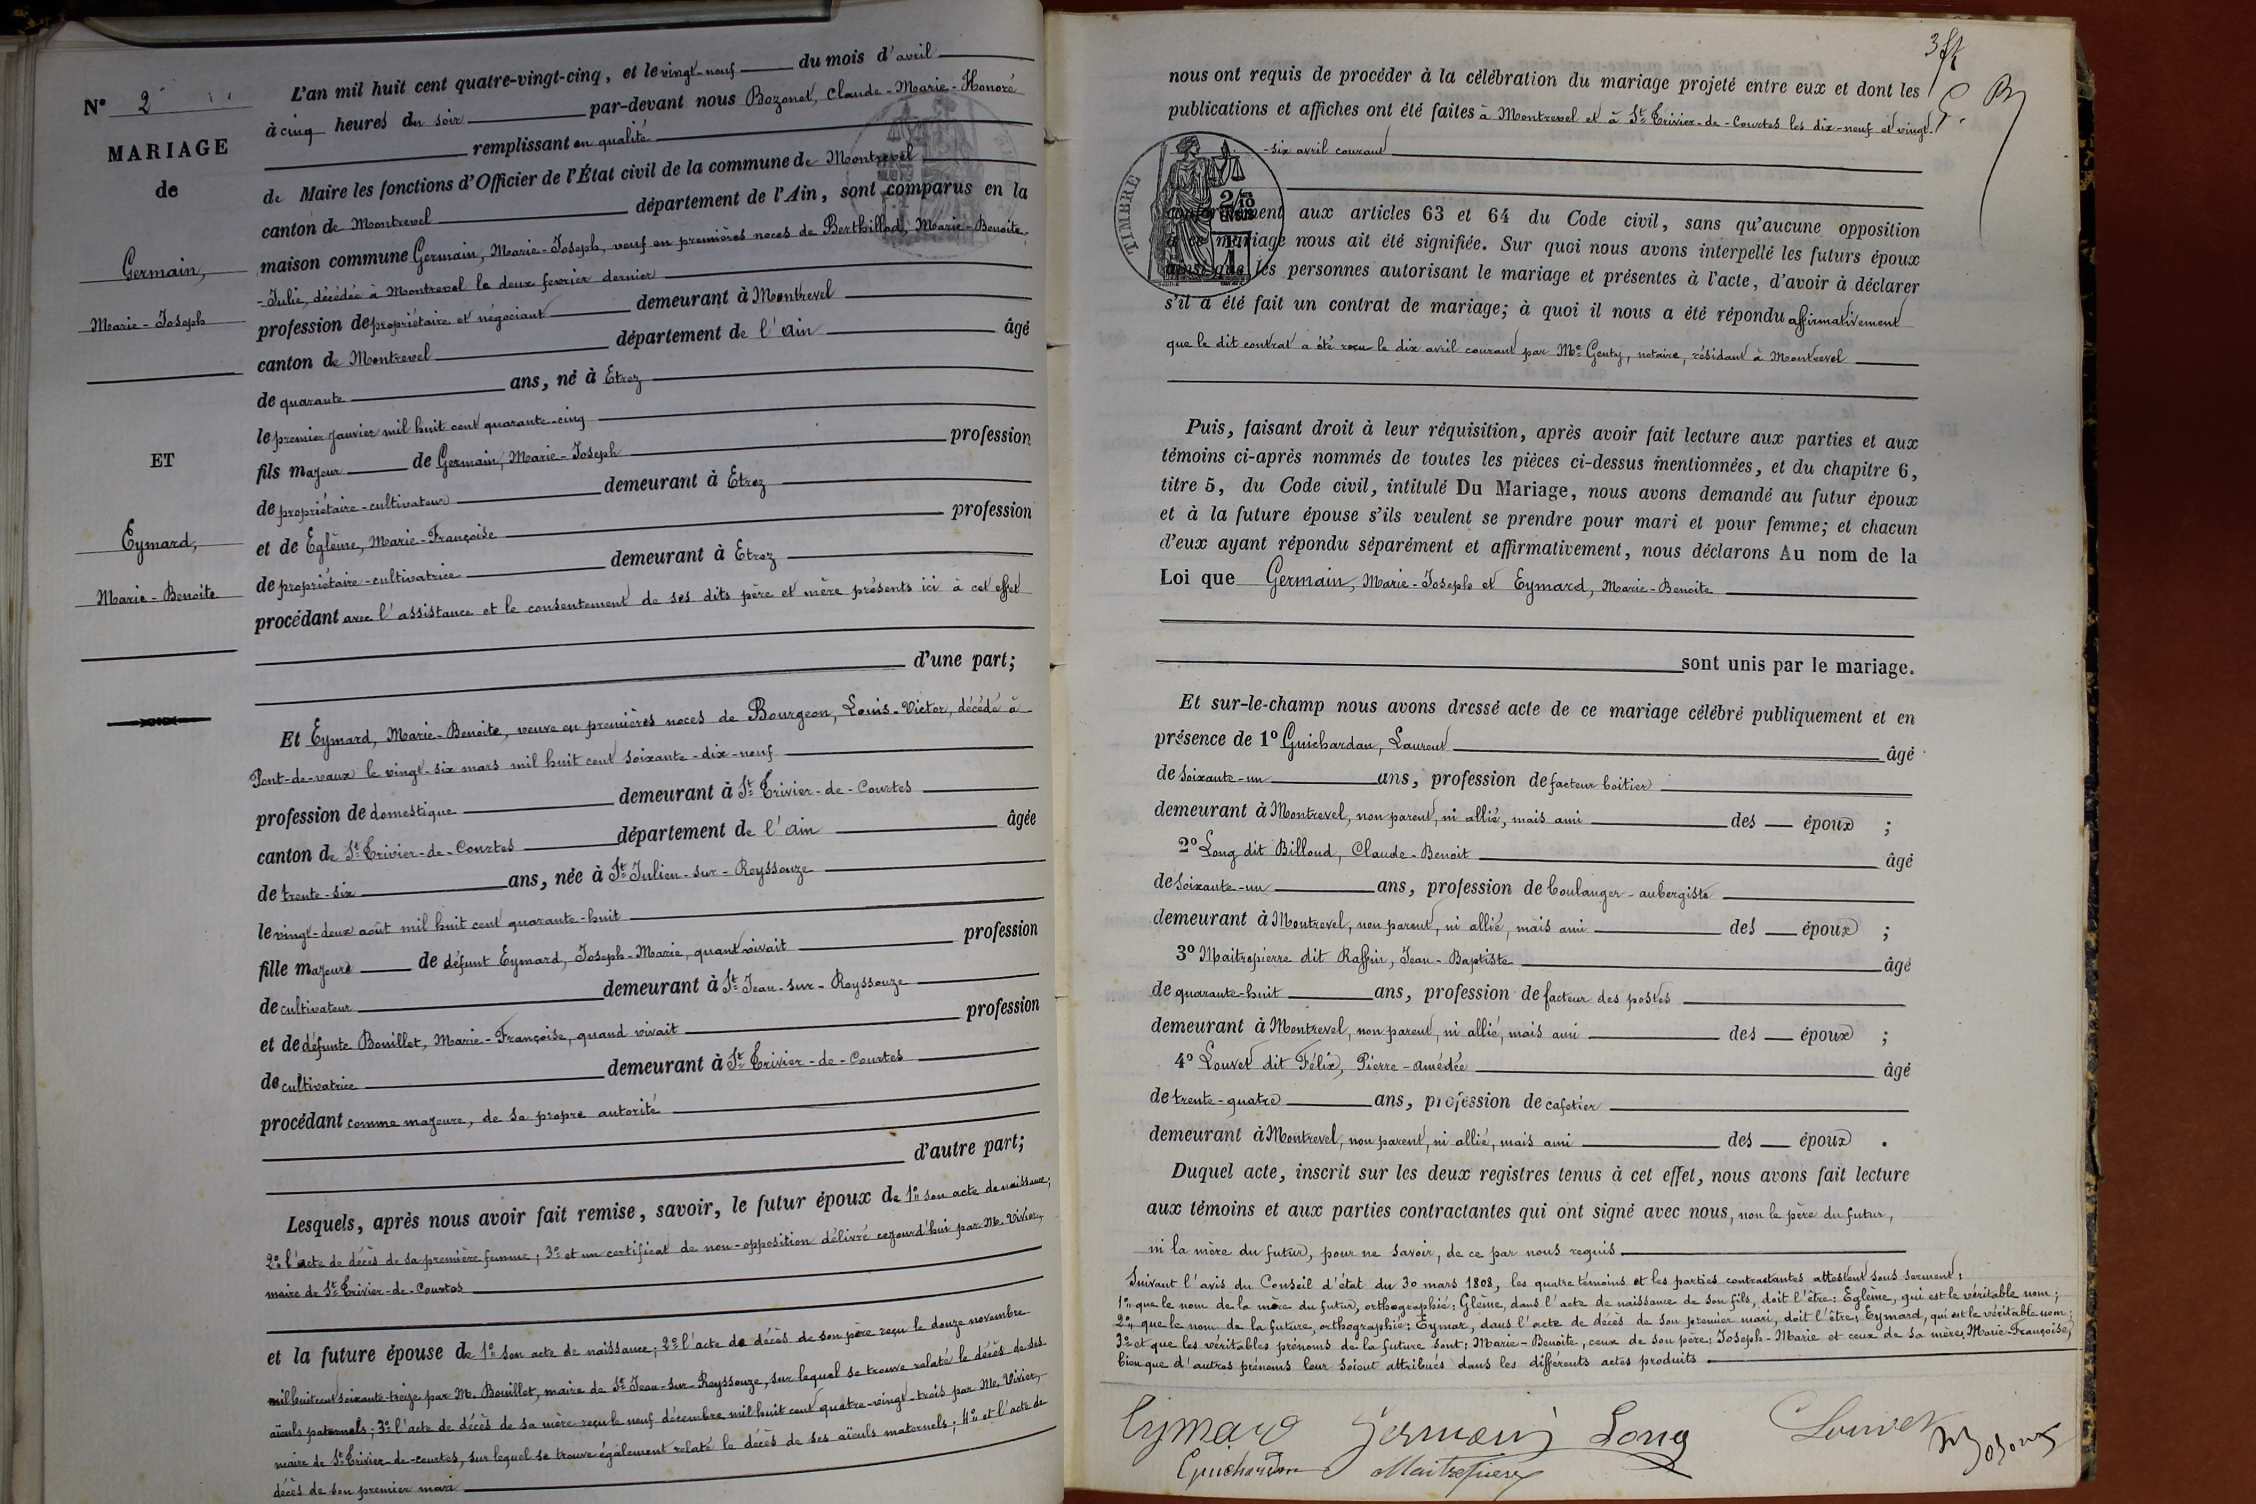 N° 2
MARIAGE
de
Germain,
Marie-Joseph
ET
Eymard,
Marie-Benoite
L'an mil huit cent quatre-vingt-cinq, et le vingt-neuf du mois d'avril
à cinq heures du soir par-devant nous Bozonet, Claude-Marie-Honoré
remplissant en qualité
de Maire les fonctions d'Officier de l'État civil de la commune de Montrevel
canton de Montrevel département de l'Ain, sont comparus en la
maison commune Germain, Marie-Joseph, veuf en premières noces de Berthillod, Marie-Benoite-
-Julie, décédée à Montrevel le deux février dernier
profession de propriétaire et négociant demeurant à Montrevel
canton de Montrevel département de l'Ain âgé
de quarante ans, né à Etrez
le premier Janvier mil huit cent quarante-cinq
fils majeur de Germain, Marie-Joseph profession
de propriétaire-cultivateur demeurant à Etrez
et de Eglème, Marie-Françoise profession
de propriétaire-cultivatrice demeurant à Etrez
procédant avec l'assistance et le consentement de ses dits père et mère présents ici à cet effet
d'une part;
Et Eymard, Marie-Benoite, veuve en premières noces de Bourgeon, Louis-Victor, décédé à
Pont-de-vaux le vingt-six mars mil huit cent soixante-dix-neuf
profession de domestique demeurant à St Trivier-de-Courtes
canton de St Trivier-de-Courtes département de l'Ain âgée
de trente-six ans, née à St Julien-sur-Reyssouze
le vingt-deux août mil huit cent quarante-huit
fille majeure de défunt Eymard, Joseph-Marie, quant vivait profession
de cultivateur demeurant à St Jean-sur-Reyssouze
et de défunte Bouillet, Marie-Françoise, quand vivait profession
de cultivatrice demeurant à St Trivier-de-Courtes
procédant comme majeure, de sa propre autorité
d'autre part;
Lesquels, après nous avoir fait remise, savoir, le futur époux de 1° son acte de naissance;
2° l'acte de décès de sa première femme; 3° et un certificat de non-opposition délivré cejourd'hui par M. Vivier,
maire de St Trivier-de-Courtes
et la future épouse de 1° son acte de naissance; 2° l'acte de décès de son père reçu le douze novembre
mil huit cent soixante-treize par M. Bouillet, maire de St Jean-sur-Reyssouze, sur lequel se trouve relaté le décès de ses
aïeuls paternels; 3° l'acte de décès de sa mère reçu le neuf décembre mil huit cent quatre-vingt-trois par M. Vivier,
maire de St Trivier-de-courtes, sur lequel se trouve également relaté le décès de ses aïeuls maternels; 4° et l'acte de
décès de son premier mari
nous ont requis de procéder à la célébration du mariage projeté entre eux et dont les
publications et affiches ont été faites à Montrevel et à St Trivier-de-Courtes les dix-neuf et vingt-
-six avril courant
TIMBRE
conformément aux articles 63 et 64 du Code civil, sans qu'aucune opposition
à ce mariage nous ait été signifiée. Sur quoi nous avons interpellé les futurs époux
ainsi que les personnes autorisant le mariage et présentes à l'acte, d'avoir à déclarer
s'il a été fait un contrat de mariage; à quoi il nous a été répondu affirmativement
que le dit contrat a été reçu le dix avril courant par Me Genty, notaire, résidant à Montrevel
Puis, faisant droit à leur réquisition, après avoir fait lecture aux parties et aux
témoins ci-après nommés de toutes les pièces ci-dessus mentionnées, et du chapitre 6,
titre 5, du Code civil, intitulé Du Mariage, nous avons demandé au futur époux
et à la future épouse s'ils veulent se prendre pour mari et pour femme; et chacun
d'eux ayant répondu séparément et affirmativement, nous déclarons Au nom de la
Loi que Germain, Marie-Joseph et Eymard, Marie-Benoite
sont unis par le mariage.
Et sur-le-champ nous avons dressé acte de ce mariage célébré publiquement et en
présence de 1° Guichardan, Laurent âgé
de soixante-un ans, profession de facteur boitier
demeurant à Montrevel, non parent, ni allié, mais ami des époux ;
2° Long dit Billoud, Claude-Benoit âgé
de soixante-un ans, profession de boulanger-aubergiste
demeurant à Montrevel, non parent, ni allié, mais ami des époux ;
3° Maitrepierre dit Raffin, Jean-Baptiste âgé
de quarante-huit ans, profession de facteur des postes
demeurant à Montrevel, non parent, ni allié, mais ami des époux ;
4° Louvet dit Félix, Pierre-Amédée âgé
de trente-quatre ans, profession de cafetier
demeurant à Montrevel, non parent, ni allié, mais ami des époux .
Duquel acte, inscrit sur les deux registres tenus à cet effet, nous avons fait lecture
aux témoins et aux parties contractantes qui ont signé avec nous, non le père du futur,
ni la mère du futur, pour ne savoir, de ce par nous requis
Suivant l'avis du Conseil d'état du 30 mars 1808, les quatre témoins et les parties contractantes attestent sous serment:
1° que le nom de la mère du futur, orthographié: Glème, dans l'acte de naissance de son fils, doit l'être: Eglème, qui est le véritable nom;
2° que le nom de la future, orthographié: Eymar, dans l'acte de décès de son premier mari, doit l'être: Eymard, qui est le véritable nom;
3° et que les véritables prénoms de la future sont: Marie-Benoite, ceux de son père: Joseph-Marie et ceux de sa mère: Marie-Françoise,
bien que d'autres prénoms leur soient attribués dans les différents actes produits
Eymard Germain Long Louvet Bozonet
Guichardan Maitrepierre